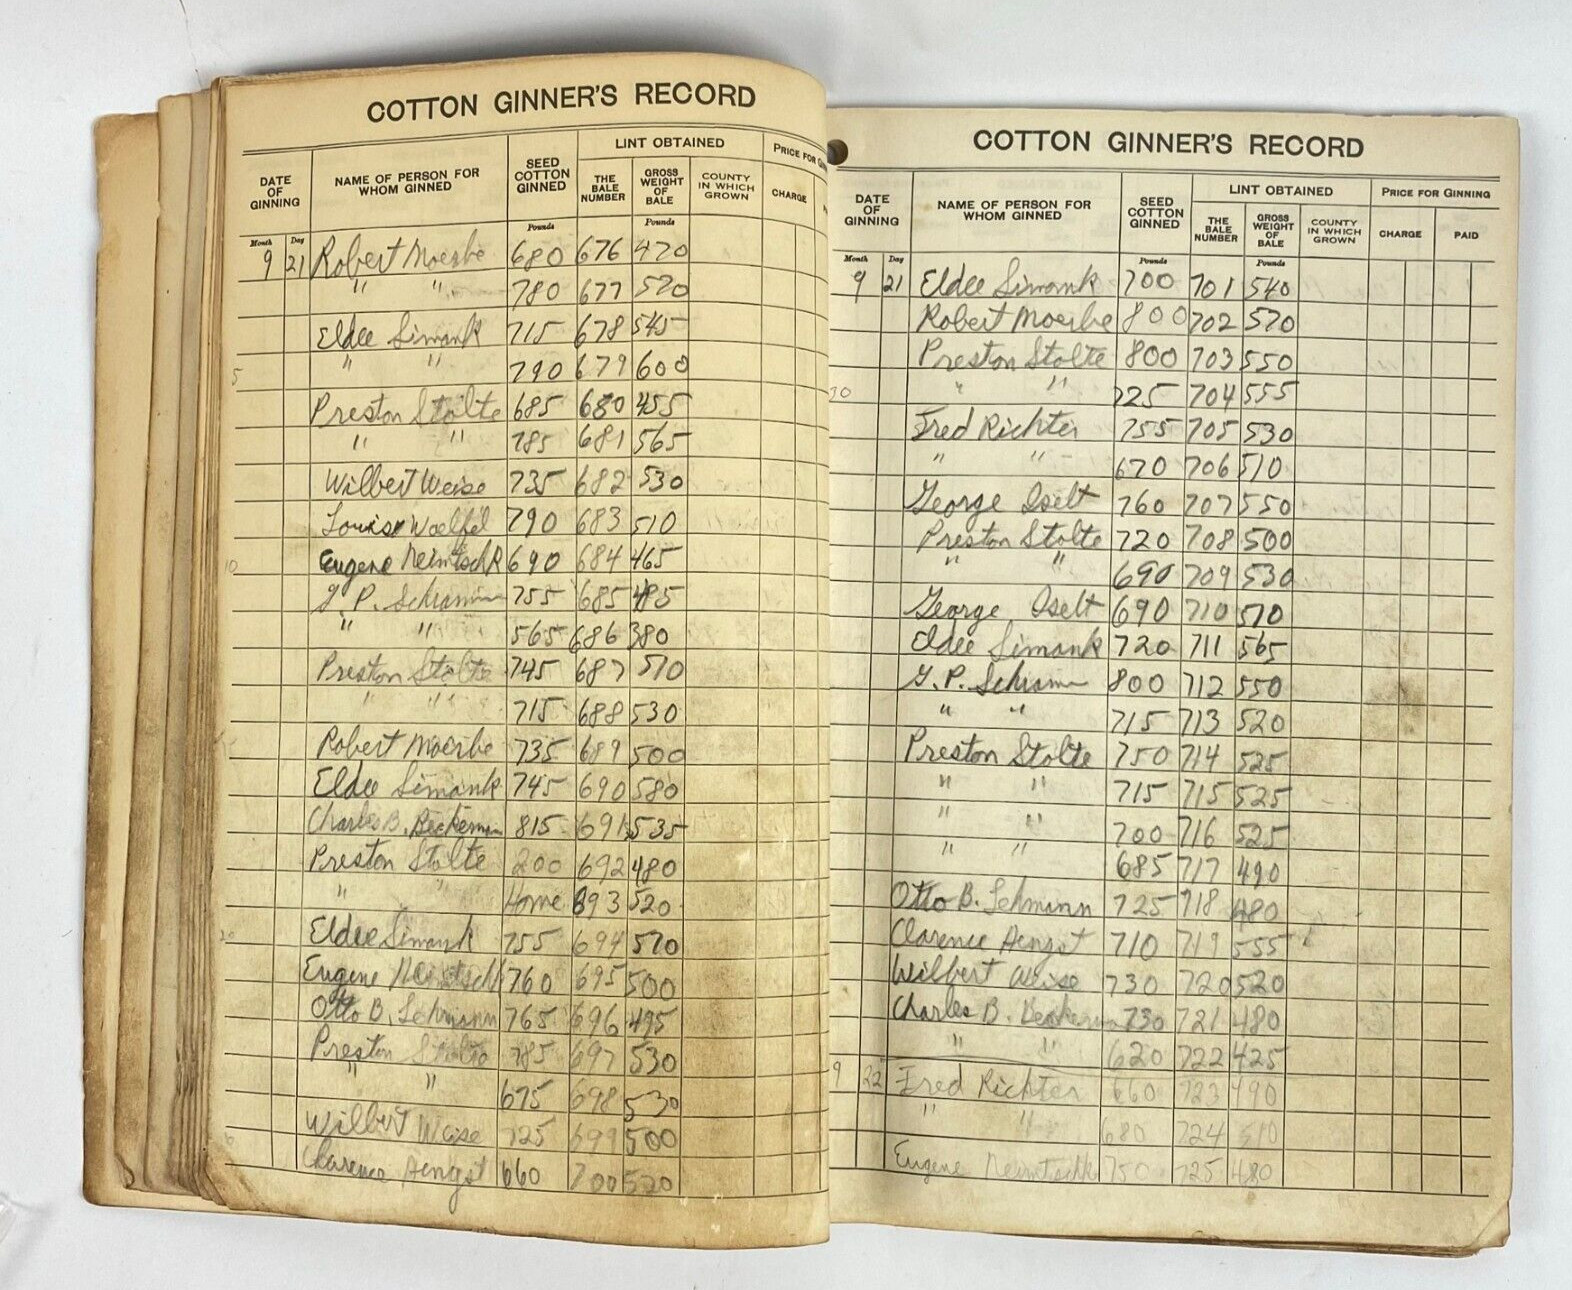 COTTON GINNER'S RECORD
DATE OF GINNING NAME OF PERSON FOR WHOM GINNED SEED COTTON GINNED LINT OBTAINED THE BALE NUMBER GROSS WEIGHT OF BALE COUNTY IN WHICH GROWN PRICE FOR GIN CHARGE
Month Day Pounds Pounds
9 21 Robert Moerbe 680 676 470
" " 780 677 570
Eldee Simank 715 678 545
" " 790 679 600
5
Preston Stolte 685 680 455
" " 785 681 565
Wilbert Weise 735 682 530
Louis Woelfel 790 683 510
10 Eugene Neimtschk 690 684 465
G. P. Schramm 755 685 485
" " 565 686 380
Preston Stolte 745 687 510
" " 715 688 530
Robert Moerbe 735 689 500
Eldee Simank 745 690 580
Charles B. Beckerman 815 691 535
Preston Stolte 200 692 480
" " Home 693 520
20 Eldee Simank 755 694 570
Eugene Neimtschk 760 695 500
Otto B. Lehmann 765 696 495
Preston Stolte 785 697 530
" " 675 698 530
Wilbert Weise 725 699 500
Clarence Aengst 660 700 520
COTTON GINNER'S RECORD
DATE OF GINNING NAME OF PERSON FOR WHOM GINNED SEED COTTON GINNED LINT OBTAINED THE BALE NUMBER GROSS WEIGHT OF BALE COUNTY IN WHICH GROWN PRICE FOR GINNING CHARGE PAID
Month Day Pounds Pounds
9 21 Eldee Simank 700 701 540
Robert Moerbe 800 702 570
Preston Stolte 800 703 550
30 " " 725 704 555
Fred Richter 755 705 530
" " 670 706 510
George Iselt 760 707 550
Preston Stolte 720 708 500
" " 690 709 530
George Iselt 690 710 510
Eldee Simank 720 711 565
G. P. Schramm 800 712 550
" " 715 713 520
Preston Stolte 750 714 525
" " 715 715 525
" " 700 716 525
" " 685 717 490
Otto B. Lehmann 725 718 480
Clarence Aengst 710 719 555
Wilbert Weise 730 720 520
Charles B. Beckerman 730 721 480
" " 620 722 425
9 22 Fred Richter 660 723 490
" " 680 724 510
Eugene Neimtschk 750 725 480